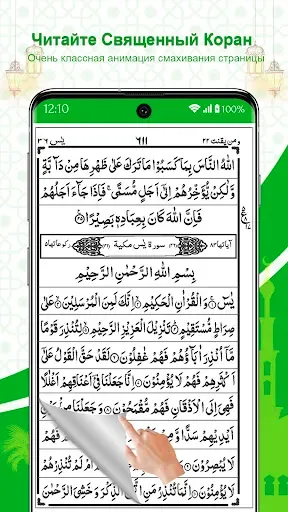 Читайте Священный Коран
Очень классная анимация смахивания страницы
12:10
100%
ومن يقنت ٢٢
٦١١
يٰسٓ ٣٦
اللّٰهُ النَّاسَ بِمَا كَسَبُوْا مَا تَرَكَ عَلٰى ظَهْرِهَا مِنْ دَآبَّةٍ
وَّلٰكِنْ يُّؤَخِّرُهُمْ اِلٰٓى اَجَلٍ مُّسَمًّىۚ فَاِذَا جَآءَ اَجَلُهُمْ
فَاِنَّ اللّٰهَ كَانَ بِعِبَادِهٖ بَصِيْرًا
اٰياتها ٨٣
سورة يٰس مكية
ركوعاتها
بِسْمِ اللّٰهِ الرَّحْمٰنِ الرَّحِيْمِ
يٰسٓ وَالْقُرْاٰنِ الْحَكِيْمِ اِنَّكَ لَمِنَ الْمُرْسَلِيْنَ عَلٰى
صِرَاطٍ مُّسْتَقِيْمٍ تَنْزِيْلَ الْعَزِيْزِ الرَّحِيْمِ لِتُنْذِرَ قَوْمًا
مَّآ اُنْذِرَ اٰبَآؤُهُمْ فَهُمْ غٰفِلُوْنَ لَقَدْ حَقَّ الْقَوْلُ عَلٰٓى
اَكْثَرِهِمْ فَهُمْ لَا يُؤْمِنُوْنَ اِنَّا جَعَلْنَا فِيْٓ اَعْنَاقِهِمْ اَغْلٰلًا
فَهِيَ اِلَى الْاَذْقَانِ فَهُمْ مُّقْمَحُوْنَ وَجَعَلْنَا مِنْۢ بَيْنِ
اَيْدِيْهِمْ سَدًّا وَّمِنْ
لَا يُبْصِرُوْنَ
تُنْذِرْهُمْ
لَا يُؤْمِنُوْنَ اِنَّمَا تُنْذِرُ مَنِ اتَّبَعَ الذِّكْرَ وَخَشِيَ الرَّحْمٰنَ